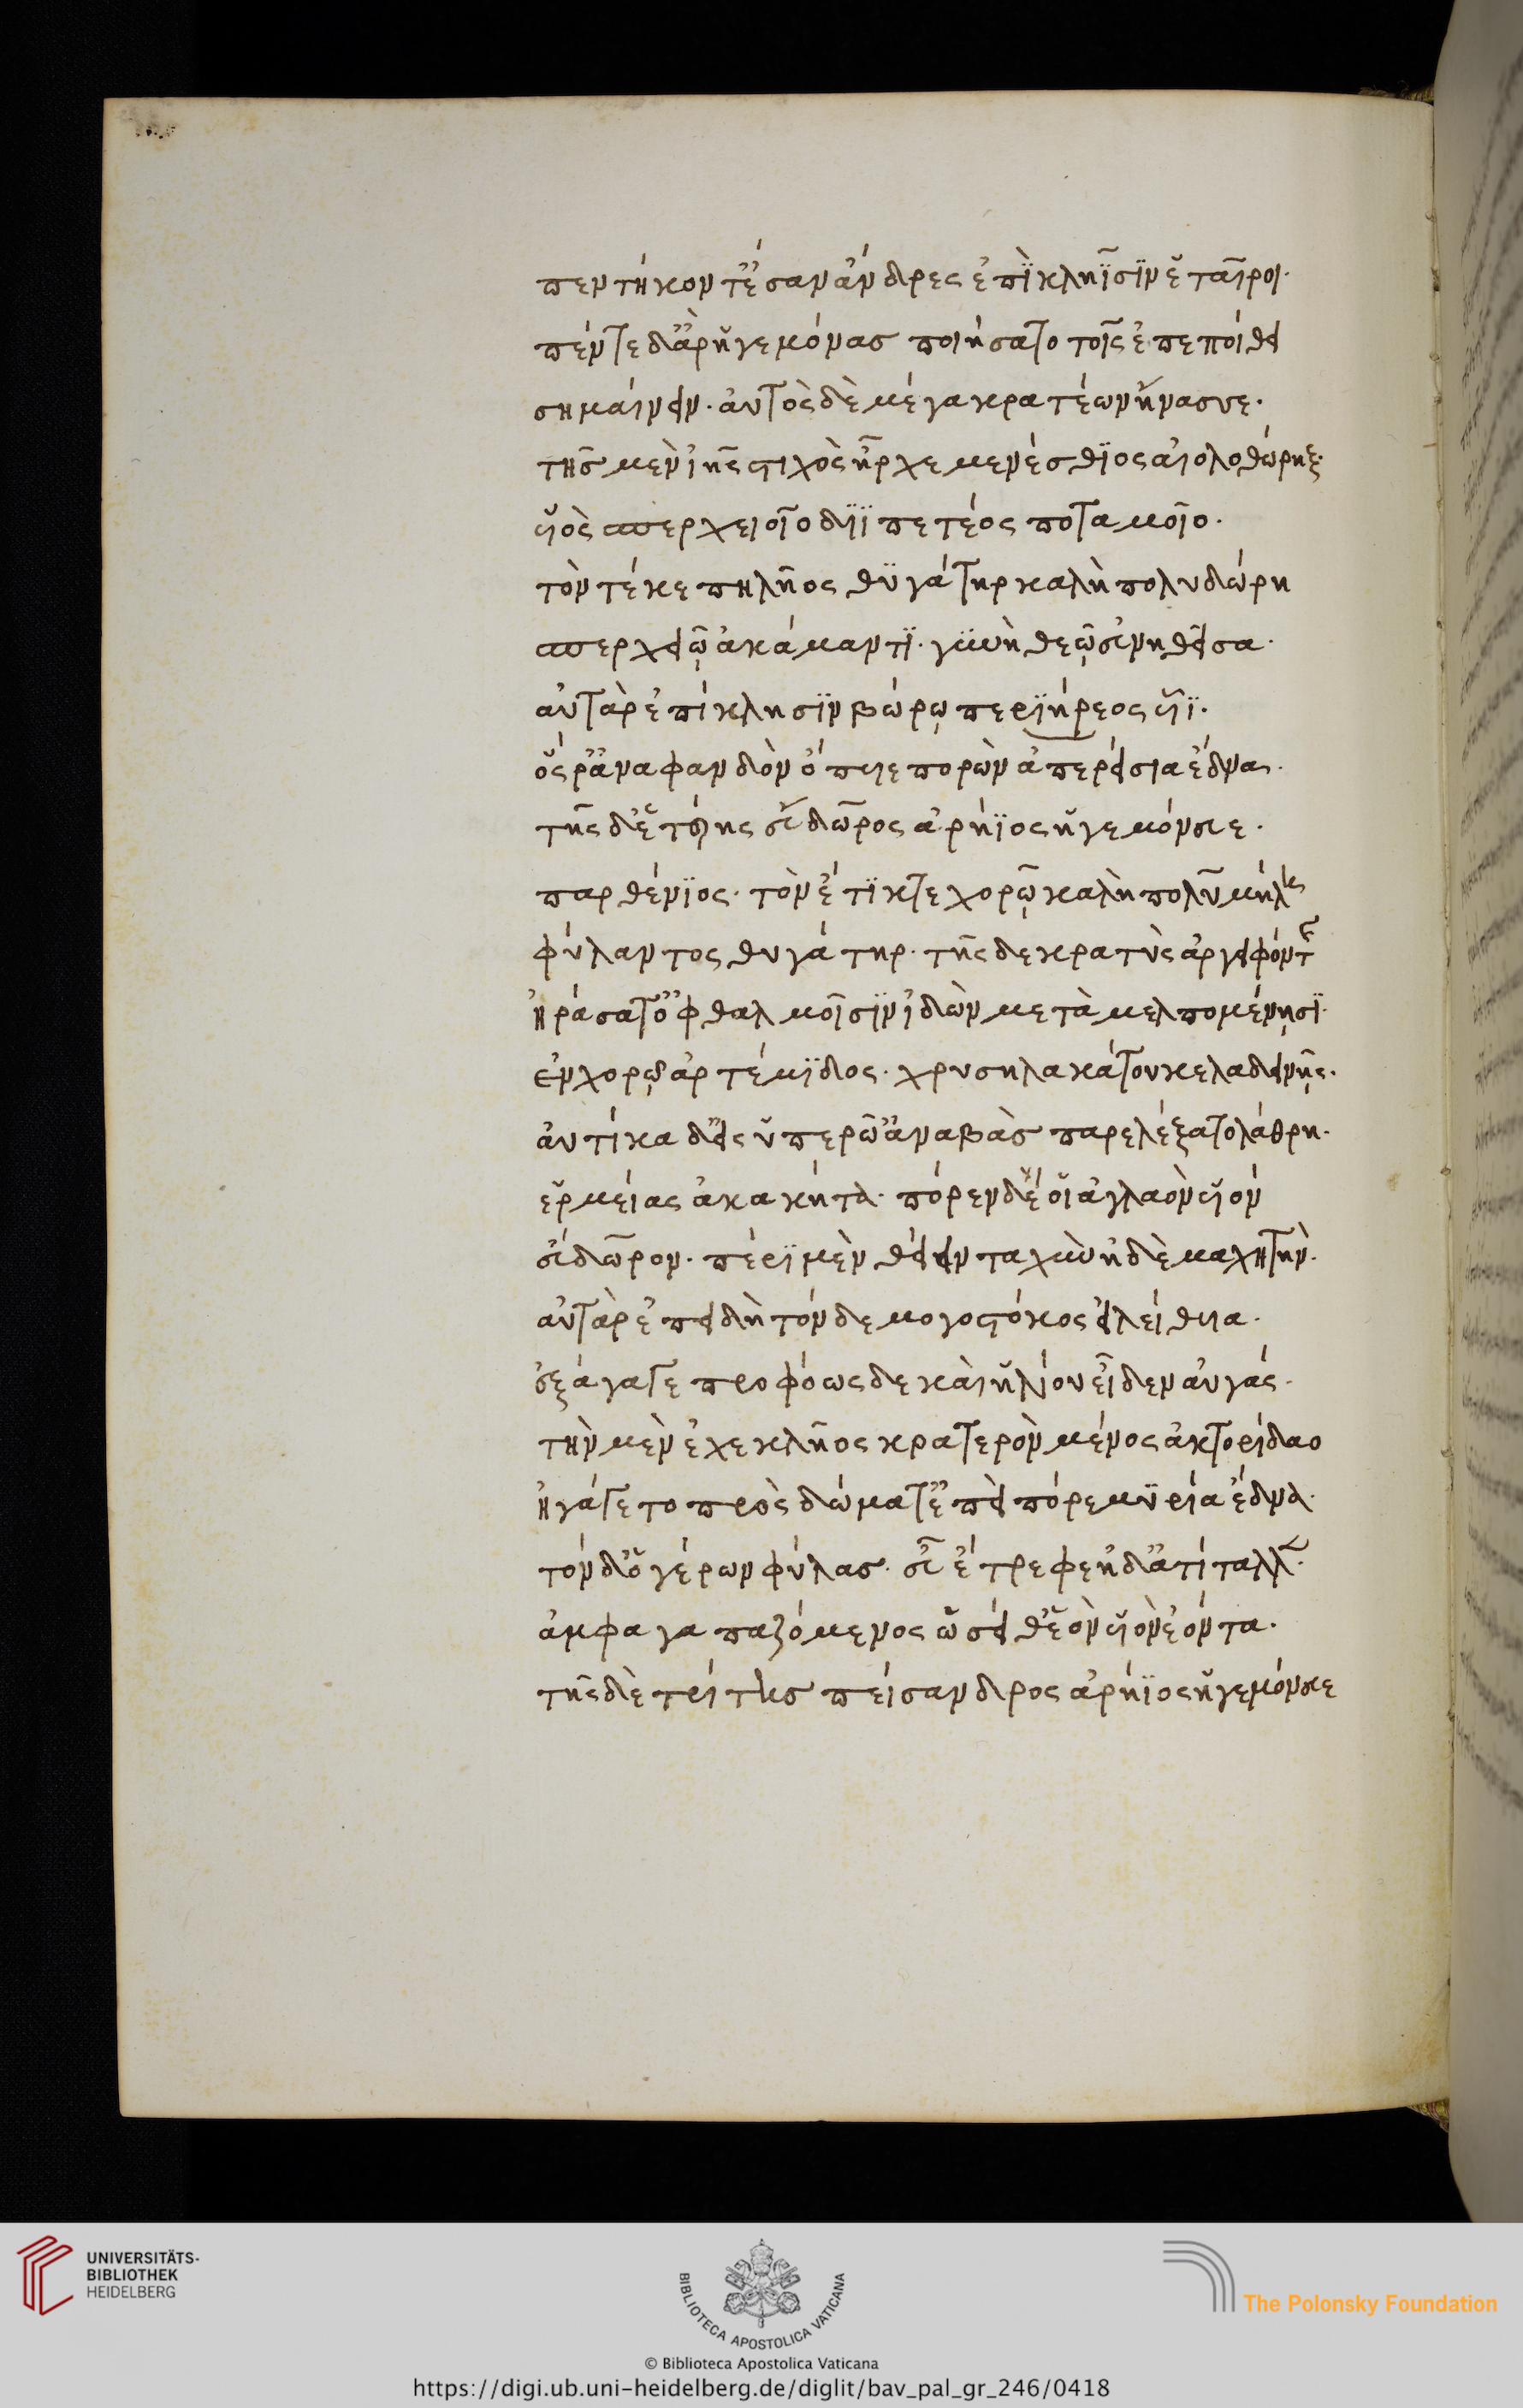 πεντήκοντ' ἔσαν ἄνδρες ἐπὶ κληῗσιν ἑταῖροι·
πέντε δ' ἄρ' ἡγεμόνας ποιήσατο τοῖς ἐπεποίθει
σημαίνειν· αὐτὸς δὲ μέγα κρατέων ἤνασσε·
τῆς μὲν ἰῆς στιχὸς ἦρχε μενέσθϊος αἰολοθώρηξ·
υἱὸς σπερχειοῖο διϊπετέος ποταμοῖο·
τὸν τέκε πηλῆος θυγάτηρ καλὴ πολυδώρη
σπερχειῷ ἀκάμαντι· γυνὴ θεῷ εὐνηθεῖσα·
αὐτὰρ ἐπίκλησιν βώρῳ περιήρεος υἷϊ·
ὅς ῥ' ἀναφανδὸν ὄπυιε πορὼν ἀπερείσια ἕδνα·
τῆς δ' ἑτέρης εὔδωρος ἀρήϊος ἡγεμόνευε·
παρθένϊος· τὸν ἔτϊκτε χορῷ καλὴ πολυμήλη
φύλαντος θυγάτηρ· τῆς δε κρατὺς ἀργειφόντης
ἠράσατ' ὀφθαλμοῖσιν ἰδὼν μετὰ μελπομένῃσϊ·
ἐν χορῷ ἀρτέμϊδος· χρυσηλακάτου κελαδεινῆς·
αὐτίκα δ' εἰς ὑπερῷ' ἀναβὰς παρελέξατο λάθρη·
ἑρμείας ἀκακήτα· πόρεν δέ οἱ ἀγλαὸν υἱόν
εὔδωρον· πέρι μὲν θείειν ταχὺν ἠδὲ μαχητήν·
αὐτὰρ ἐπειδὴ τόνδε μογοστόκος εἰλείθυια·
ἐξάγαγε προφόωσδε καὶ ἡλίου εἶδεν αὐγάς·
τὴν μὲν ἐχεκλῆος κρατερὸν μένος ἀκτορίδαο
ἠγάγετο πρὸς δώματ' ἐπεὶ πόρε μυρία ἕδνα·
τόνδ' ὁ γέρων φύλας· εὖ ἔτρεφεν ἠδ' ἀτίταλλεν·
ἀμφαγαπαζόμενος ὡσεί θ' ἑὸν υἱὸν ἐόντα·
τῆς δὲ τρίτης πείσανδρος ἀρήϊος ἡγεμόνευε
UNIVERSITÄTS-
BIBLIOTHEK
HEIDELBERG
BIBLIOTECA APOSTOLICA VATICANA
The Polonsky Foundation
© Biblioteca Apostolica Vaticana
https://digi.ub.uni-heidelberg.de/diglit/bav_pal_gr_246/0418